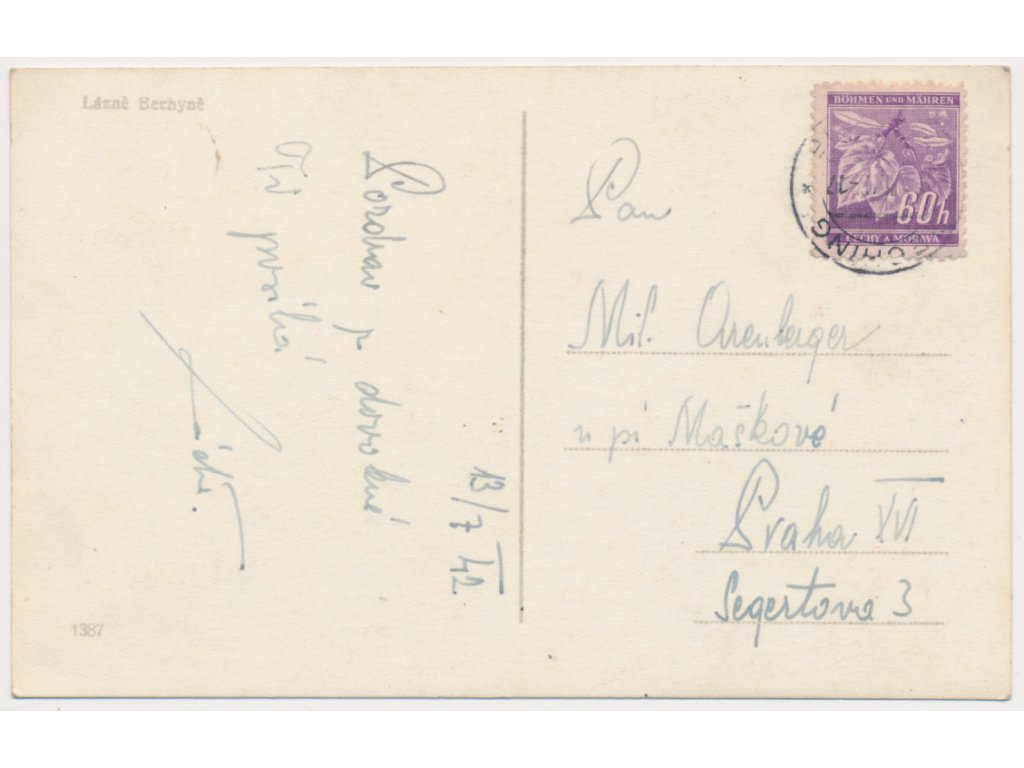 Lázně Bechyně
13/7 42
Pozdrav z dovolené
posílá
Pan
Mil. Orenberger
u pí Maškové
Praha XVI
Segertova 3
BÖHMEN UND MÄHREN
60h
ČECHY A MORAVA
1387